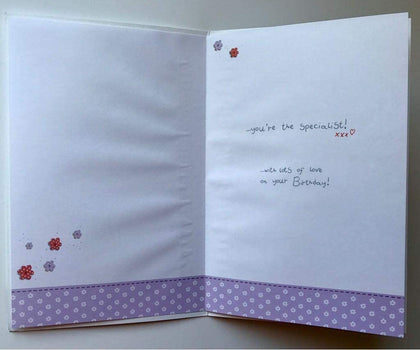 ...you're the specialist!
xxx♡
...with lots of love
on your Birthday!